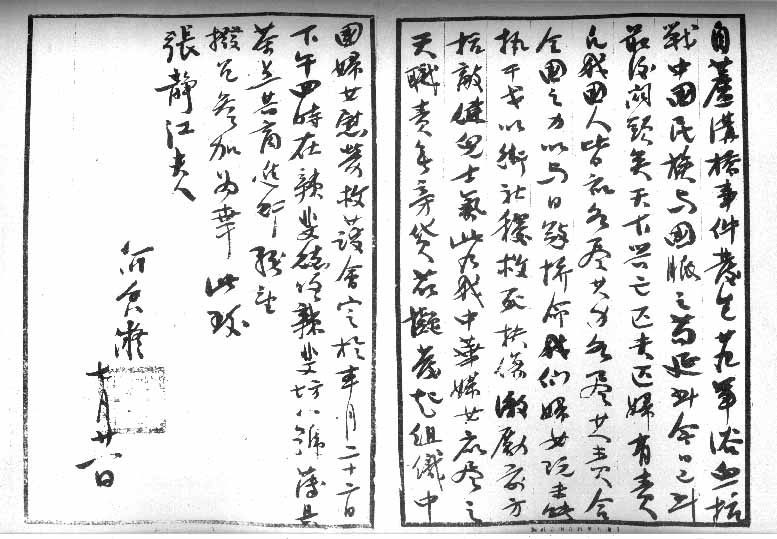 自蘆溝橋事件發生花軍浴血抗
戰中國民族與國脈之苟延至今日已到
最後關頭矣天下興亡匹夫匹婦有責
凡我國人皆應各盡其力各盡其責合
全國之力以與日敵拚命我們婦女既未能
執干戈以衛社稷救死扶傷激勵前方
抗敵健兒士氣此乃我中華婦女應盡之
天職責無旁貸茲擬發起組織中
國婦女慰勞救護會定於本月二十二日
下午四時在辣斐德路辣斐坊八號薄具
茶點共商進行務望
撥冗參加為幸此致
張靜江夫人
何香凝
七月廿一日